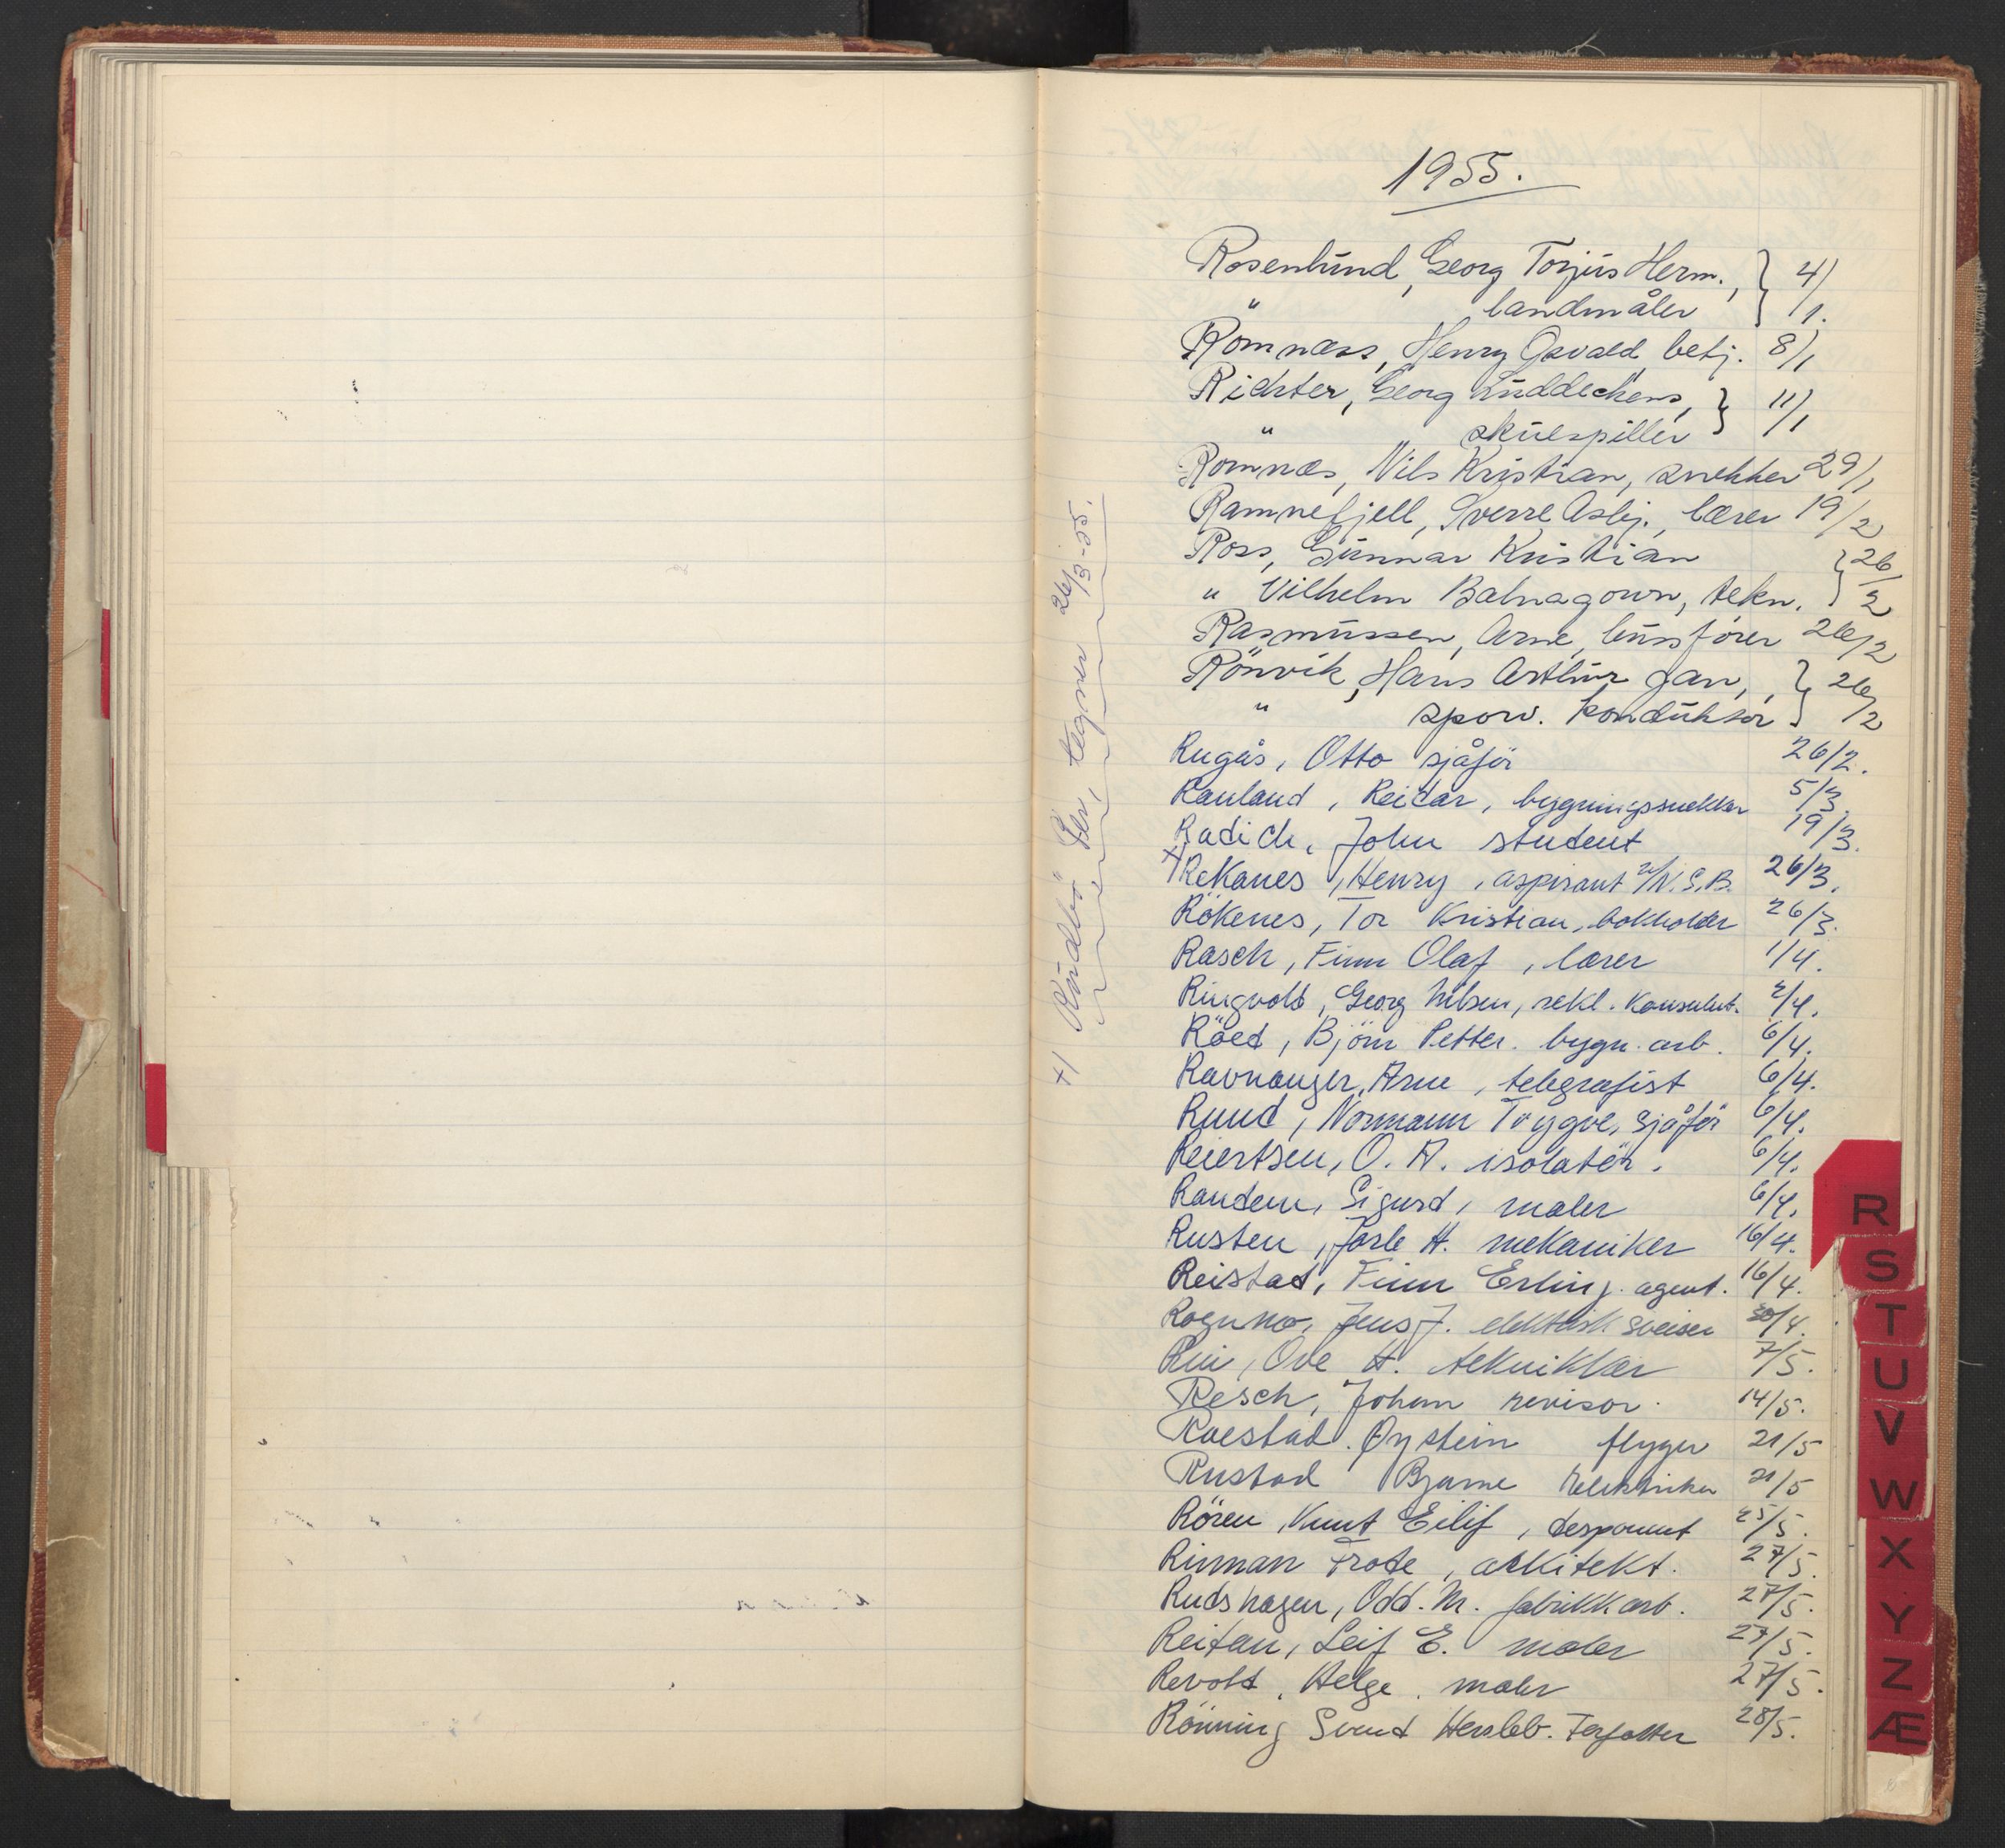 1955.
Rosenlund, Georg Torjus Herm., } 4/1.
" landmåler
Römnæss, Henry Osvald, betj. 8/1
Richter, Georg Lüddeckens, } 11/1
" skuespiller
Romnæs, Nils Kristian, snekker 29/1
Ramnefjell, Sverre Asbj., lærer 19/2
Ross, Gunnar Kristian } 26/2
" Vilhelm Balnagown, tekn.
Rasmussen, Arne, bussförer 26/2
Rönvik, Hans Arthur Jan, } 26/2
" sporv. konduktör
Rugås, Otto sjåför 26/2.
Rauland, Reidar, bygningssnekker 5/3.
Radich, John student 19/3.
+) Rekanes, Henry, aspirant v/N.S.B. 26/3.
Rökenes, Tor Kristian, bokholder 26/3.
Rasch, Finn Olaf, lærer 1/4.
Ringvold, Georg Nilsen, rekl. konsulent. 2/4.
Röed, Björn Petter. bygn. arb. 6/4.
Ravnanger, Arne, telegrafist 6/4.
Ruud, Normann Trygve, sjåför 6/4.
Reiertsen, O. A. isolatör. 6/4.
Randem, Sigurd, maler 6/4.
Rusten, Jarle H. mekaniker 16/4.
Reistad, Finn Erling. agent. 16/4.
Rogumo, Jens J. elektrisk sveiser 30/4.
Rui, Ove H. tekniker 7/5.
Resch, Johan revisor. 14/5.
Raestad. Øystein flyger 21/5
Rustad Bjarne elektriker 21/5
Rören, Knut Eilif, disponent 25/5.
Rinnan Frode, arkitekt. 27/5.
Rudshagen, Odd. M. fabrikkarb. 27/5.
Reitan, Leif E. maler 27/5.
Revold, Helge, maler 27/5.
Rönning Svend Hersleb. Forfatter 28/5.
+) Rudbö, Per, tegner 26/3-55.
R
S
T
U
V
W
X
Y
Z
Æ